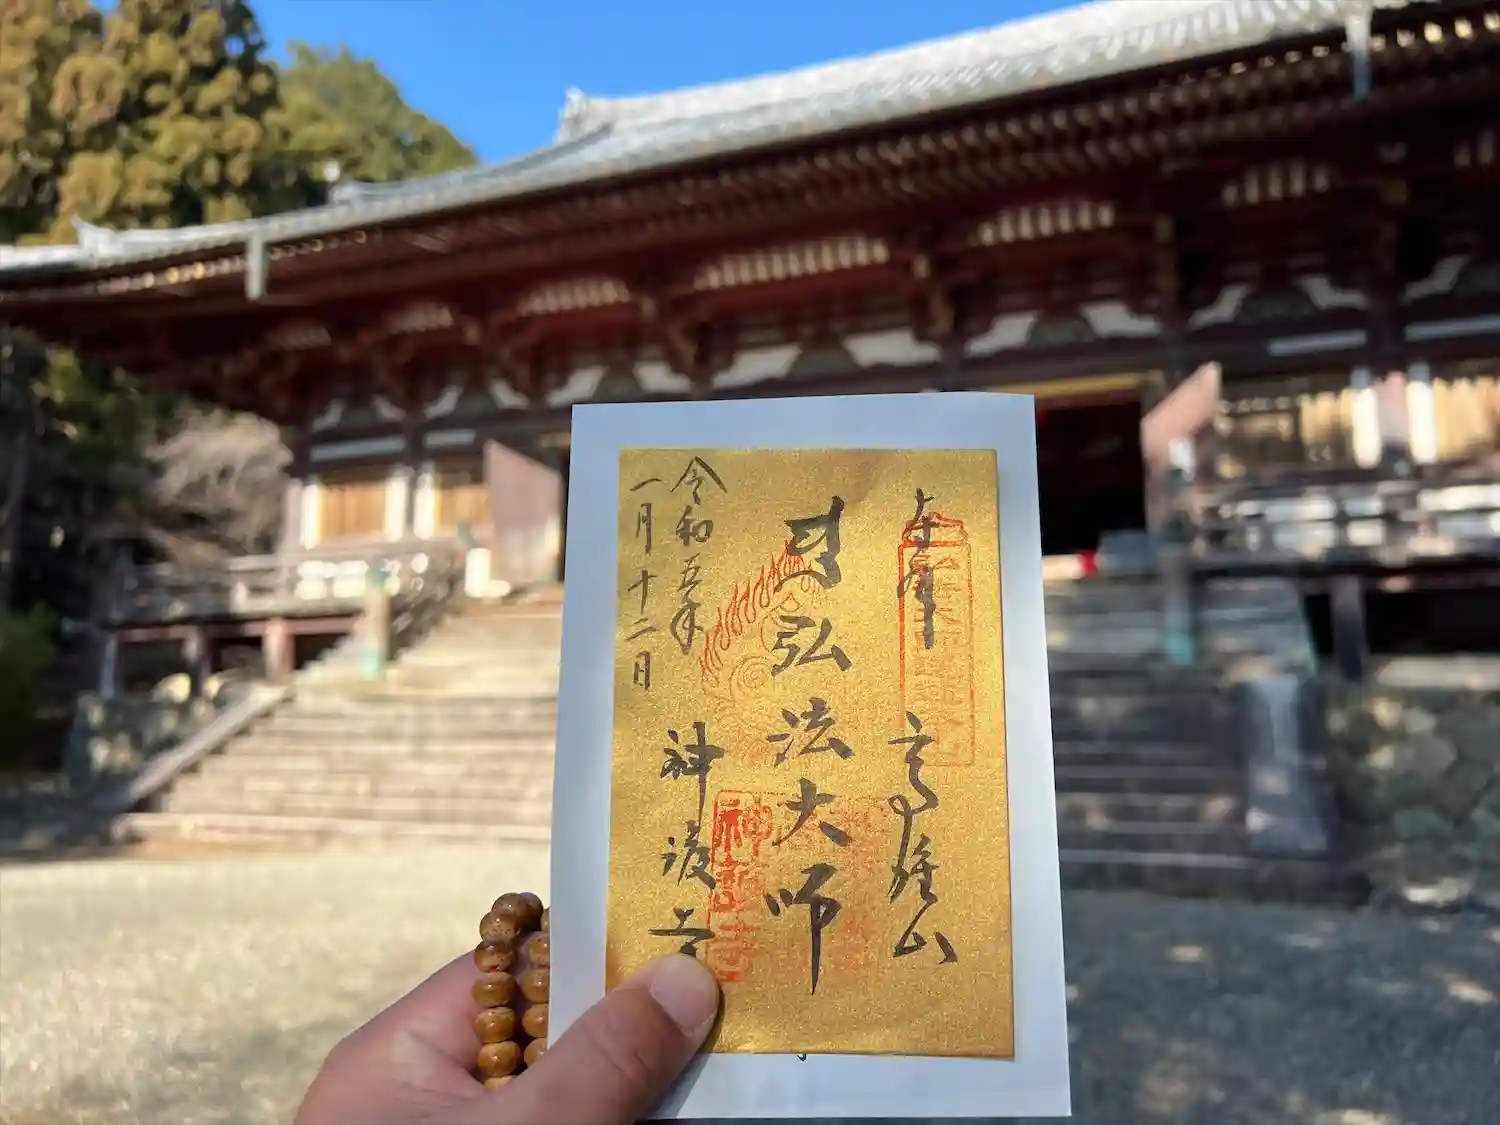 奉拝 高雄山
弘法大師
神護寺
令和五年
一月十二日